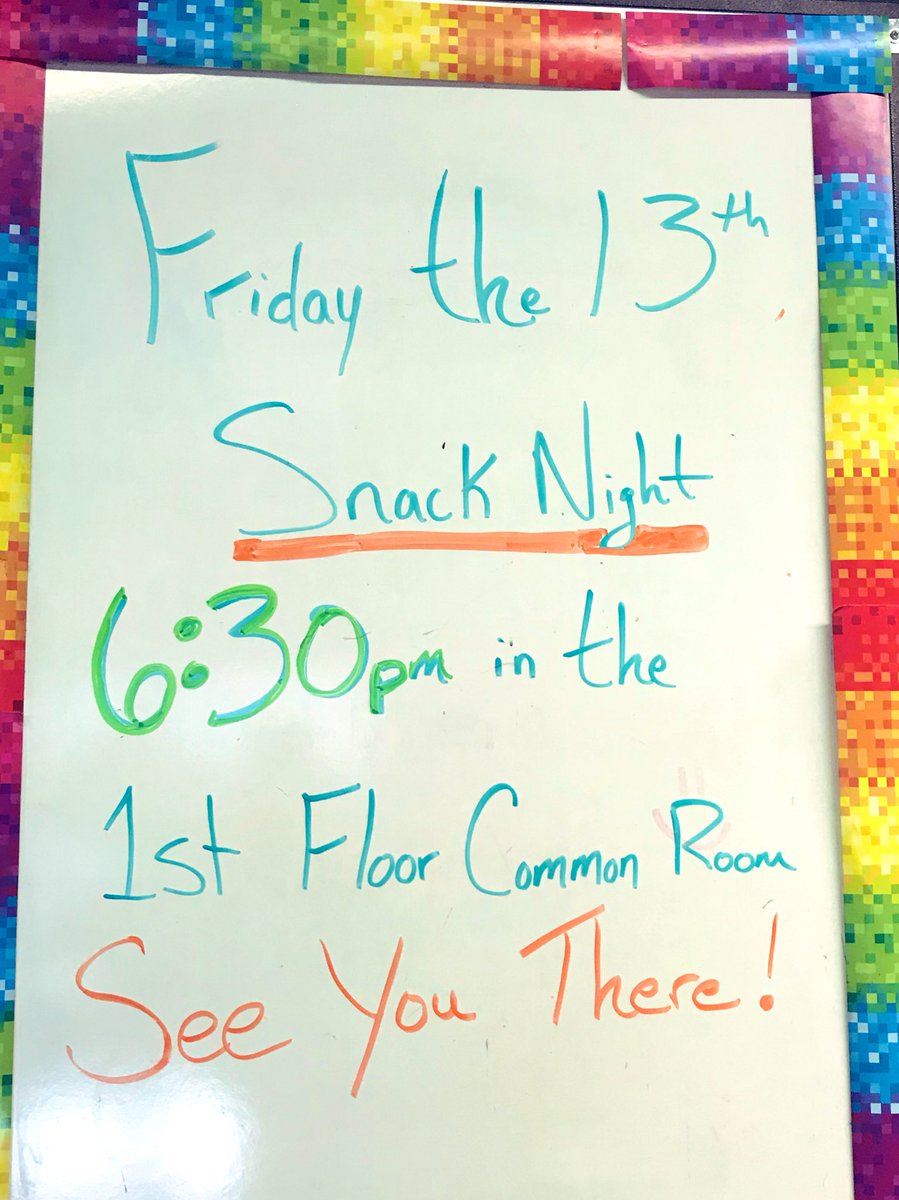 Friday the 13th
Snack Night
6:30pm in the
1st Floor Common Room
See You There!